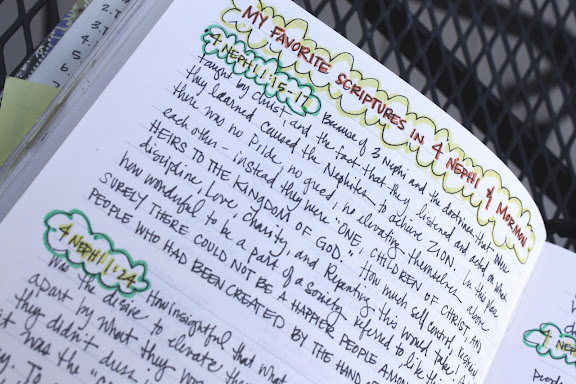 MY FAVORITE SCRIPTURES IN 4 NEPHI & MORMON
4 NEPHI 1:15-17 Because of 3 Nephi and the doctrine that was
taught by Christ, and the fact that they listened and acted on what
they learned caused the Nephites to achieve ZION. In this year
there was no pride, no greed, no elevating themselves above
each other - instead they were "ONE, CHILDREN OF CHRIST, AND
HEIRS TO THE KINGDOM OF GOD." How much self control,
discipline, Love, Charity, and Repenting this would take!
how wonderful to be a part of a society referred to like this
SURELY THERE COULD NOT BE A HAPPIER PEOPLE
PEOPLE WHO HAD BEEN CREATED BY THE HAND OF
4 NEPHI 1:24 How insightful that what
was the desire to elevate
apart by what they
they didn't
it was the
To
2.
3.
4.
5.
4 NEP